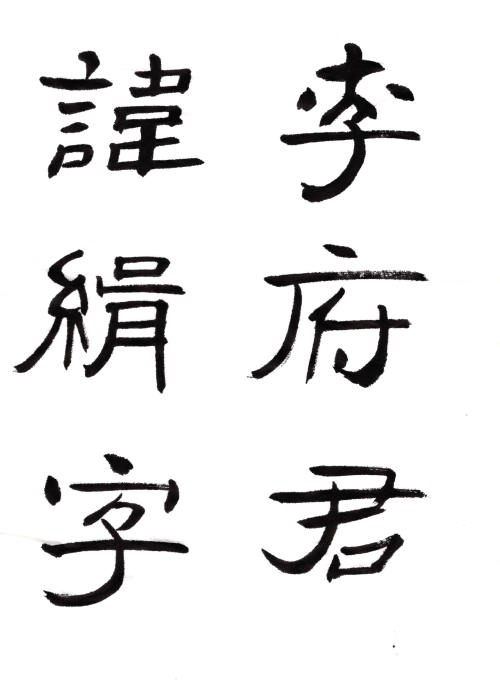 李府君
諱絹字